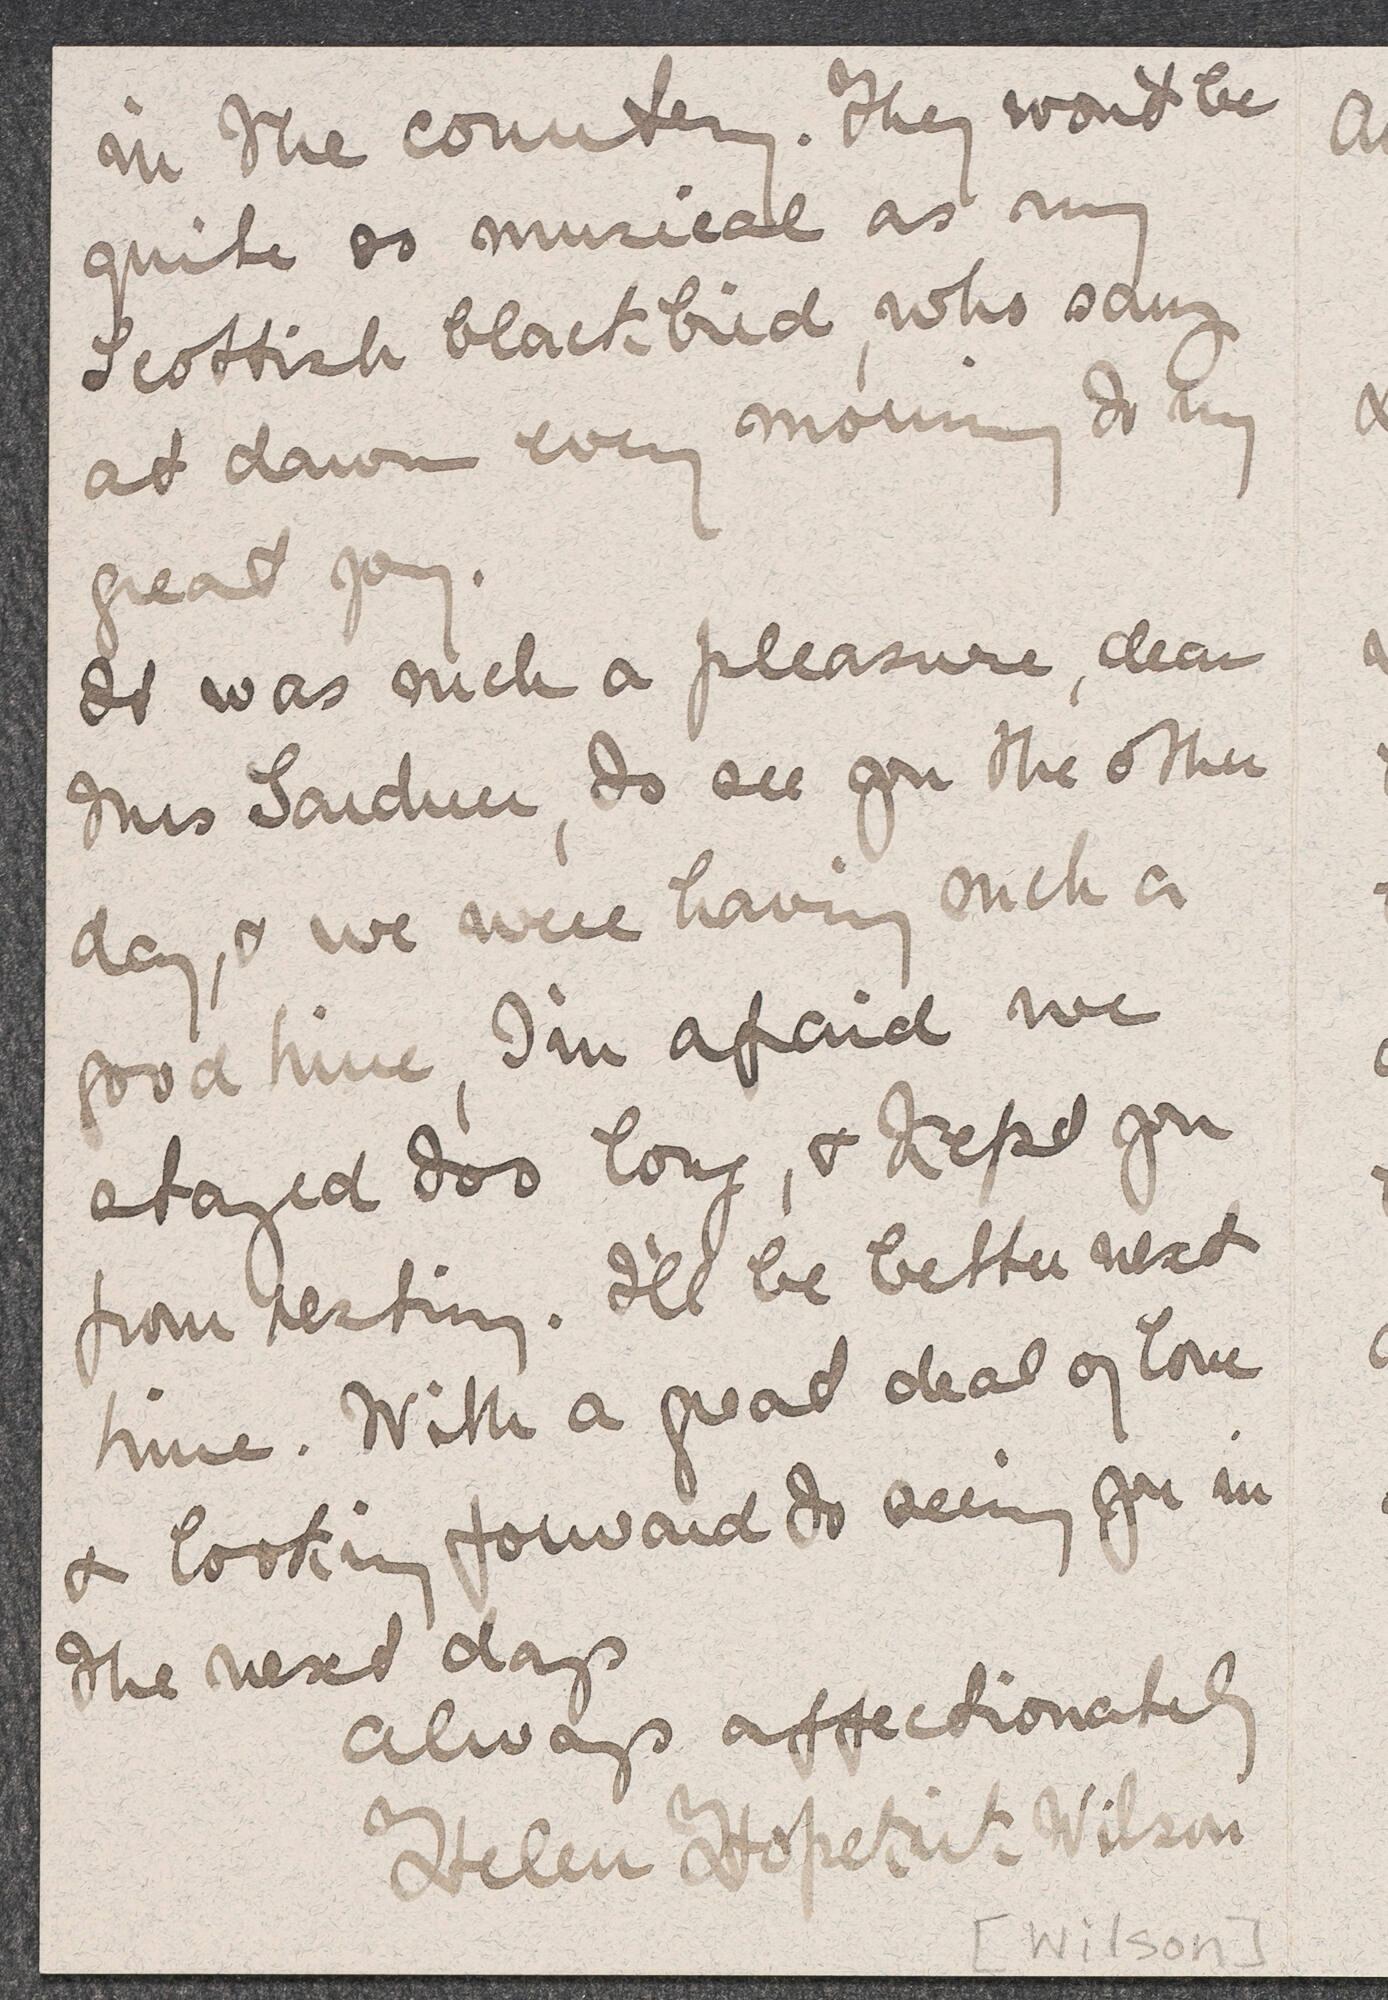 in the country. They won't be
quite so musical as my
Scottish blackbird, who sang
at dawn every morning to my
great joy.
It was such a pleasure, dear
Mrs Gardner, to see you the other
day, & we were having such a
good time, I'm afraid we
stayed too long, & kept you
from resting. I'll be better next
time. With a great deal of love
& looking forward to seeing you in
the next days
Always affectionately
Helen Hopekirk Wilson
[Wilson]